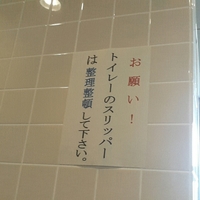 お願い！
トイレーのスリッパー
は整理整頓して下さい。